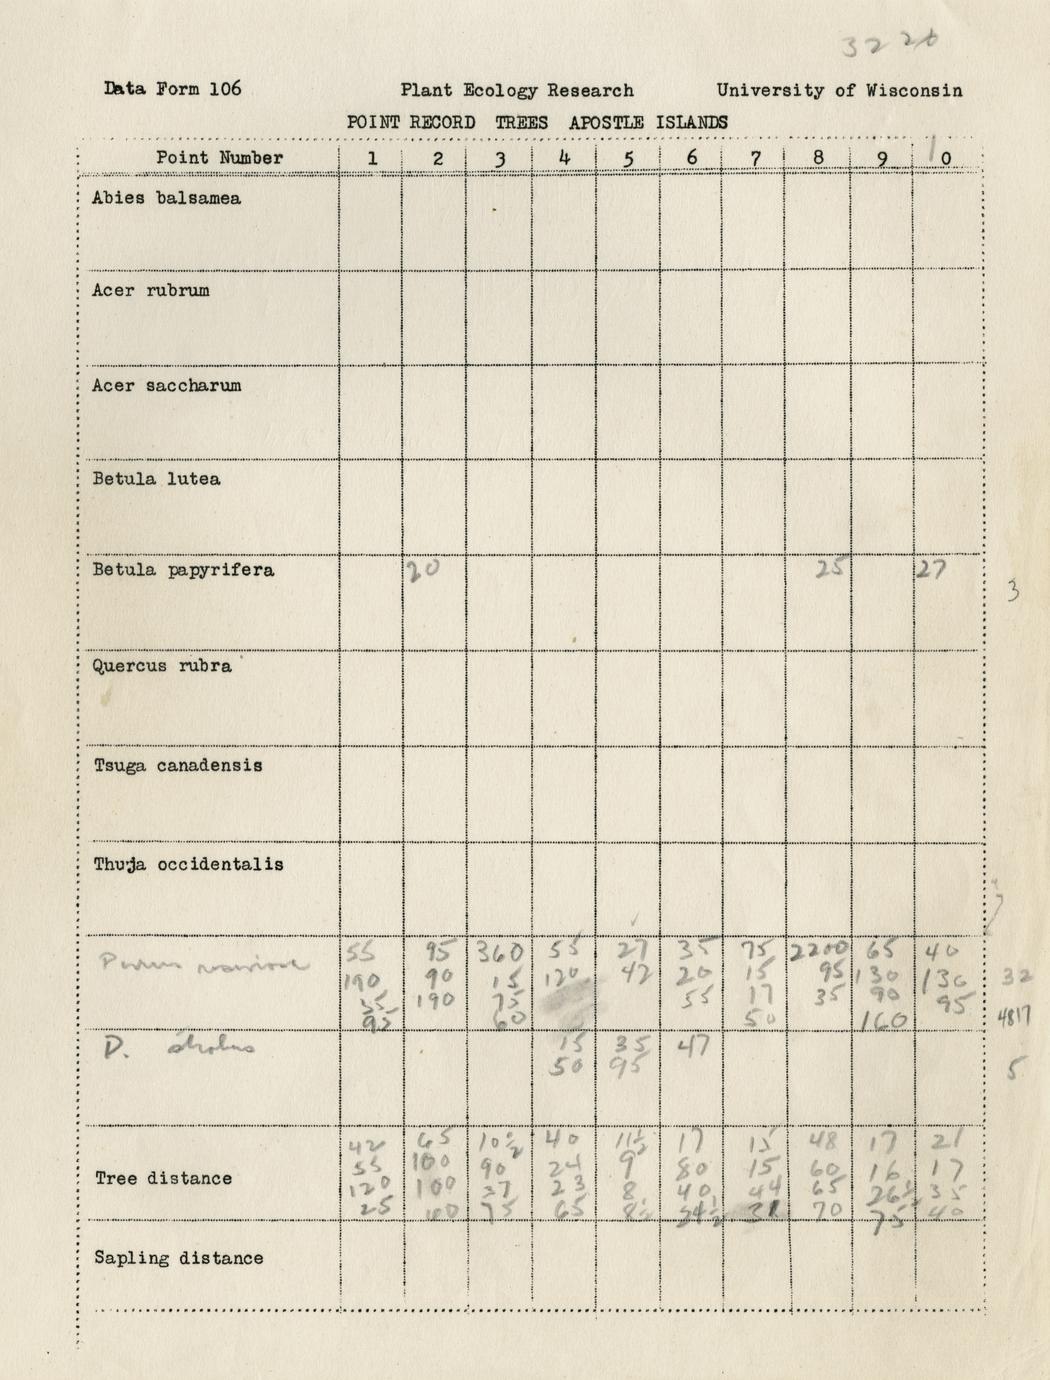 32
Data Form 106 Plant Ecology Research University of Wisconsin
POINT RECORD TREES APOSTLE ISLANDS
Point Number 1 2 3 4 5 6 7 8 9 10
Abies balsamea
Acer rubrum
Acer saccharum
Betula lutea
Betula papyrifera 20 25 27
3
Quercus rubra
Tsuga canadensis
Thuja occidentalis
55 95 360 55 27 35 75 2200 65 40
190 90 15 120 42 20 15 95 130 130 32
55 190 75 55 17 35 90 95
95 60 50 160 4817
15 35 47
50 95 5
42 65 10½ 40 11½ 17 15 48 17 21
55 100 90 24 9 80 15 60 16 17
Tree distance 120 100 37 23 8 40 44 65 26½ 35
25 60 75 65 8½ 54½ 31 70 75 40
Sapling distance